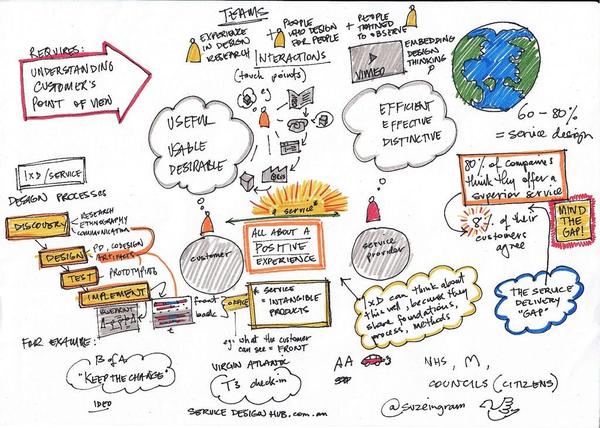 TEAMS
EXPERIENCE
IN DESIGN
RESEARCH
+ PEOPLE
WHO DESIGN
FOR PEOPLE
+ PEOPLE
TRAINED
TO OBSERVE
INTERACTIONS
(touch points)
eg
VIMEO
EMBEDDING
DESIGN
THINKING
REQUIRES:
UNDERSTANDING
CUSTOMER'S
POINT OF VIEW
USEFUL
USABLE
DESIRABLE
EFFICIENT
EFFECTIVE
DISTINCTIVE
60-80%
= service design
80% of companies
think they offer a
superior service
of their
customers
agree
MIND
THE
GAP!
THE SERVICE
DELIVERY
"GAP"
IXD/SERVICE
DESIGN PROCESSES
DISCOVERY
RESEARCH
ETHNOGRAPHY
COMMUNICATION
DESIGN
PD, CODESIGN
ARTIFACTS
TEST
PROTOTYPING
IMPLEMENT
BLUEPRINT
front
back
customer
service
service
provider
ALL ABOUT A
POSITIVE
EXPERIENCE
* SERVICE
= INTANGIBLE
PRODUCTS
eg: what the customer
can see = FRONT
IxD can think about
this well, because they
share foundations,
process, methods
FOR EXAMPLE:
B of A
"KEEP THE CHANGE"
IDEO
VIRGIN ATLANTIC
T3 check-in
AA
NHS, M,
COUNCILS (CITIZENS)
SERVICE DESIGN HUB.com.au
@suzeingram